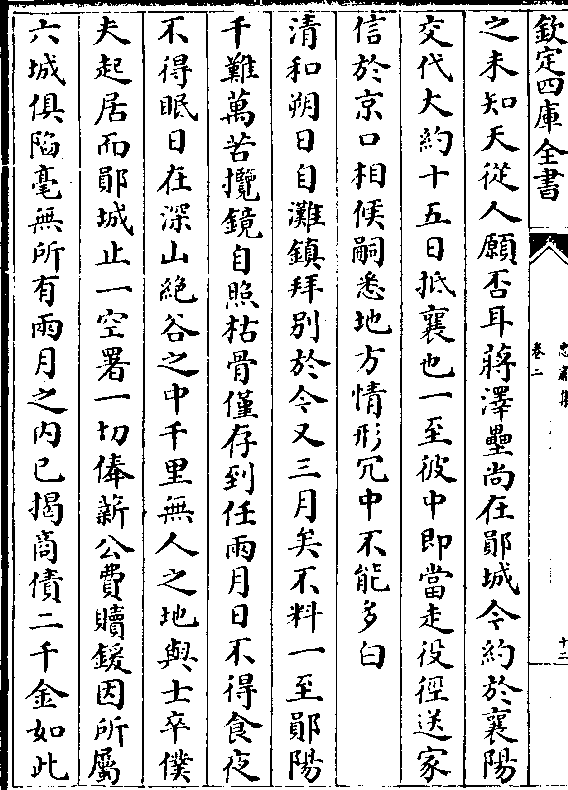 欽定四庫全書
卷二
十二
之未知天從人願否耳蔣澤壘尚在鄖城今約於襄陽
交代大約十五日抵襄也一至彼中即當走役徑送家
信於京口相候嗣悉地方情形冗中不能多白
清和朔日自灘鎮拜别於今又三月矣不料一至鄖陽
千難萬苦攬鏡自照枯骨僅存到任兩月日不得食夜
不得眠日在深山絶谷之中千里無人之地與士卒僕
夫起居而鄖城止一空署一切俸薪公費贖鍰因所屬
六城俱陷毫無所有兩月之内已揭商債二千金如此